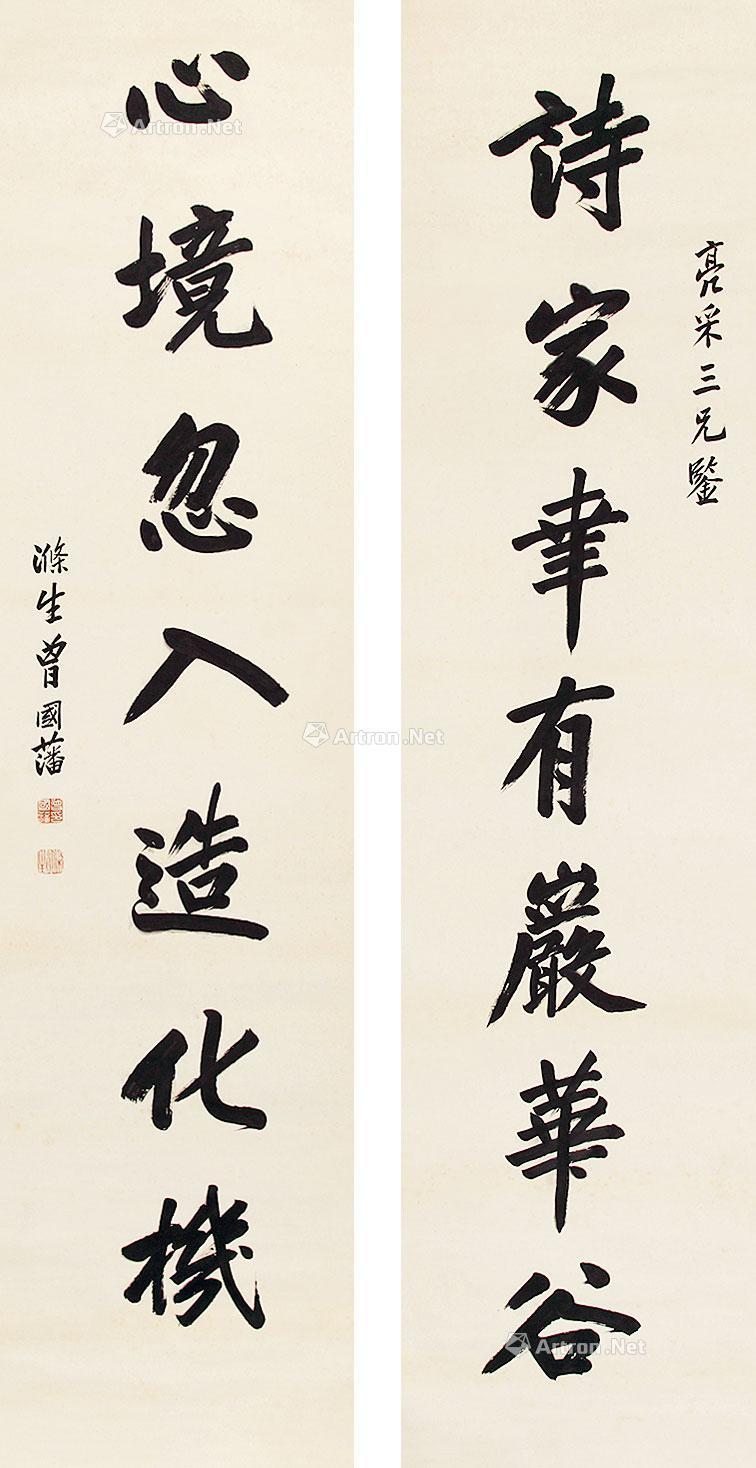 亮采三兄鑒
詩家聿有嚴華谷
心境忽入造化機
滌生曾國藩
Artron.Net
Artron.Net
Artron.Net